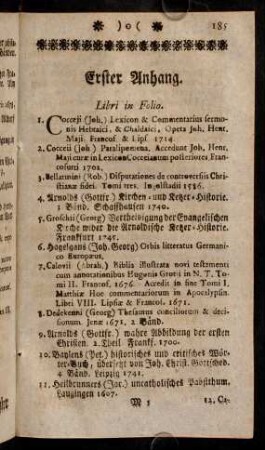 )o( 185
Erster Anhang.
Libri in Folio.
1. Coccejı (Joh.) Lexicon & Commentarius sermo-
nis Hebraici, & Chaldaici, Opera Joh. Henr.
Maji. Francof. & Lipſ. 1714
2. Cocceii (Joh.) Paralipomena, Accedunt Joh. Henr.
Maji curæ in Lexicon Coccejanum poſteriores Fran-
cofurti 1702.
3. Bellarmini (Rob.) Diſputationes de controverſiis Chri-
ſtianæ fidei. Tomi tres. Ingolſtadii 1586.
4. Arnolds (Gottfr.) Kirchen- und Ketzer-Hiſtorie.
3 Bänd. Schaffhauſen 1740.
5. Groſchii (Georg) Vertheidigung der Evangeliſchen
Kirche wider die Arnoldiſche Ketzer-Hiſtorie.
Frankfurt 1745.
6. Hogelgans (Joh. Georg) Orbis litteratus Germani-
co Europæus,
7. Calovii (Abrah.) Biblia Illuſtrata novi teſtamenti
cum annotationibus Hugonis Grotii in N. T. To-
mi II. Francof. 1676. Accedit in fine Tomi I.
Matthiæ Hoe commentariorum in Apocalypſin.
Libri VIII. Lipſiæ & Francof. 1671.
8. Dedekenni (Georg) Theſaurus conciliorum & deci-
ſionum. Jenæ 1671, 2 Bänd.
9. Arnolds (Gottfr.) wahre Abbildung der erſten
Chriſten. 2. Theil Frankf. 1700.
10. Baylens (Pet.) hiſtoriſches und critiſches Wör-
ter-Buch, überſetzt von Joh. Chriſt. Gottſched.
4 Bänd. Leipzig 1741.
11. Heilbrunners (Jac.) uncatholiſches Pabſtthum.
Lauingen 1607.
M 5 12. Ca-